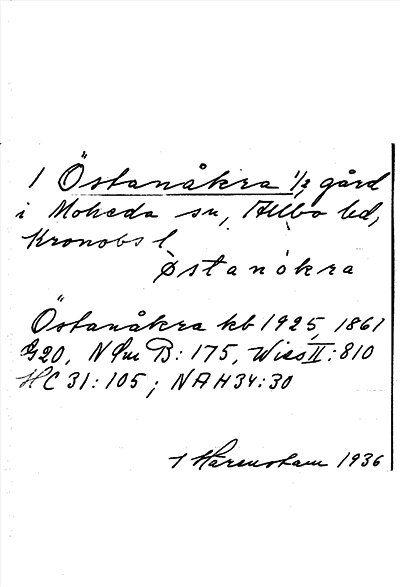 1 Östanåkra 1/2 gård
i Moheda sn, Allbo hd,
Kronobs l
Østanòkra
Östanåkra kb 1925, 1861
G20, NSm B: 175, Wies II: 810
HC 31: 105; NAH 34: 30
1936